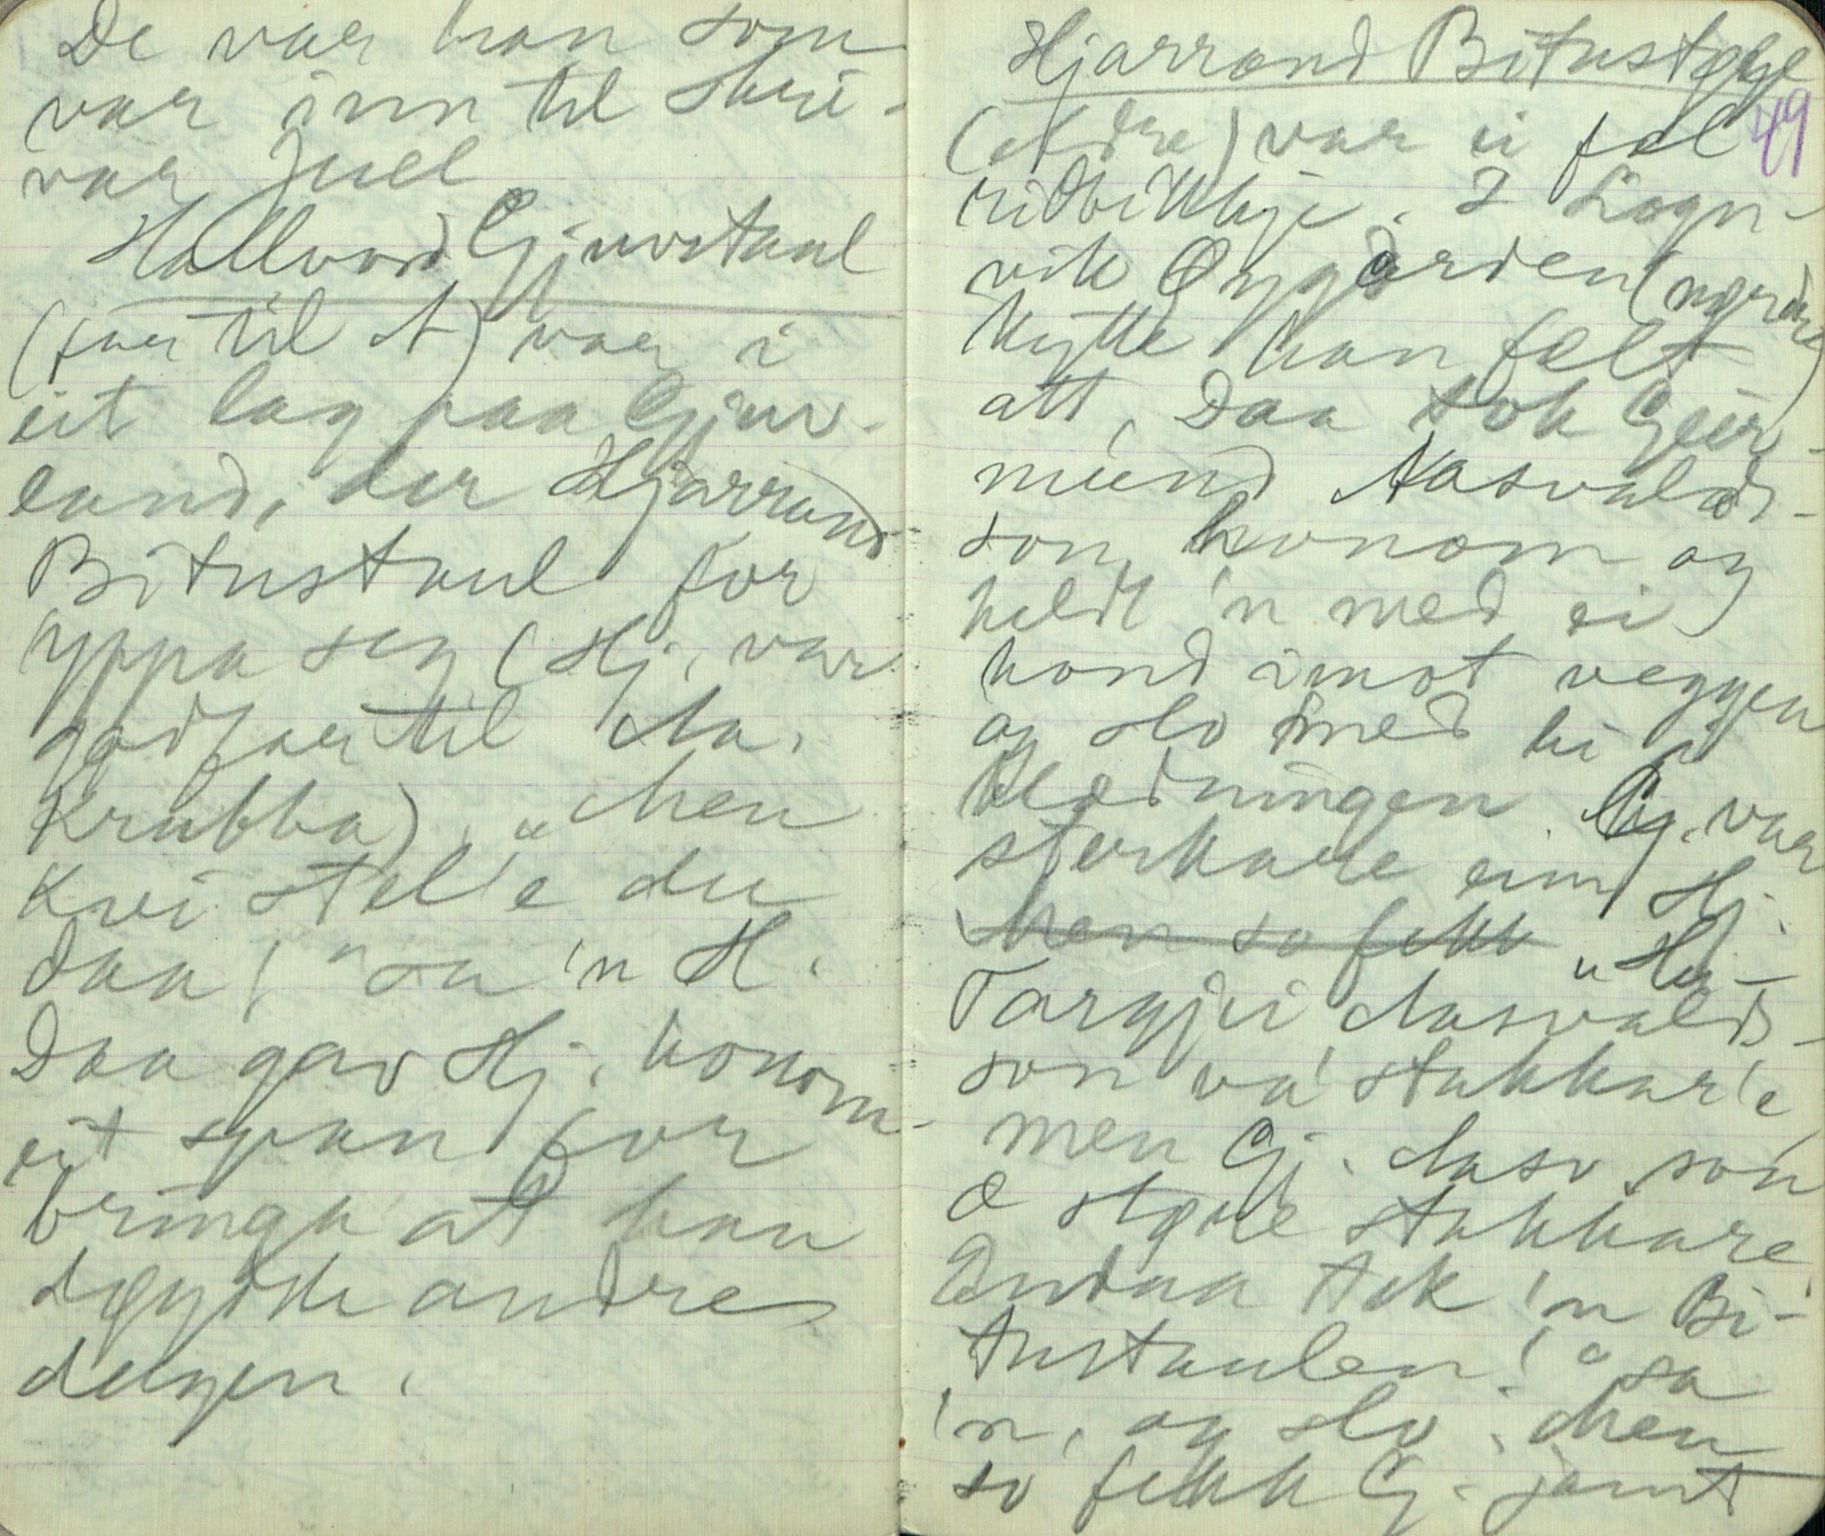 De var han som
var inn til skri-
var Juel
Hallvord Gjuvstaul
(far til A) var i
eit lag paa Gjuv-
land, der Hjarrand
Bitustaul for
yppa seg (Hj. var
godfar til Aa.
Krubba), „Men
Kvi stel'e du
daa!" sa 'n H.
Daa gav Hj. honom
eit span for
bringa at han
døydde andre
dagen.
Hjarrand Bitustøyl
49
(eldre) var ei fæl
ridbikkje. I Logn-
vik Øygarden (nørdre)
hytte han felt
att. Daa tok Geir-
mund Aasvalds-
son honom og
heldt 'n med ei
hond imot veggen
og slo med hi i
klædningen. Gj. var
sterkare enn Hj.
Men so fekk „Ha-
Targjei Aasvalds-
son va' stakkar'e,
men Gj. Aasv.son
æ større stakkare
Endaa tek 'n Bi-
tustaulen!" sa
'n, og slo. Men
so fekk Gj. jamt